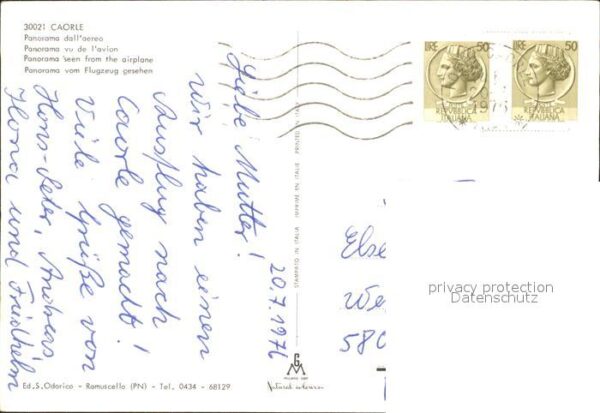 30021 CAORLE
Panorama dall'aereo
Panorama vu de l'avion
Panorama seen from the airplane
Panorama vom Flugzeug gesehen
LIRE 50
REPUBBLICA
ITALIANA
LIRE 50
REPUBBLICA
ITALIANA
20.7.1976
Liebe Mutter!
Wir haben einen
Ausflug nach
Caorle gemacht!
Viele Grüße von
Hans-Peter, Andreas,
Ilona und Friedhelm
STAMPATO IN ITALIA IMPRIMÉ EN ITALIE PRINTED IN ITALY
Else
We
580
privacy protection
Datenschutz
Ed. S. Odorico - Ramuscello (PN) - Tel. 0434 - 68129
Natural colours